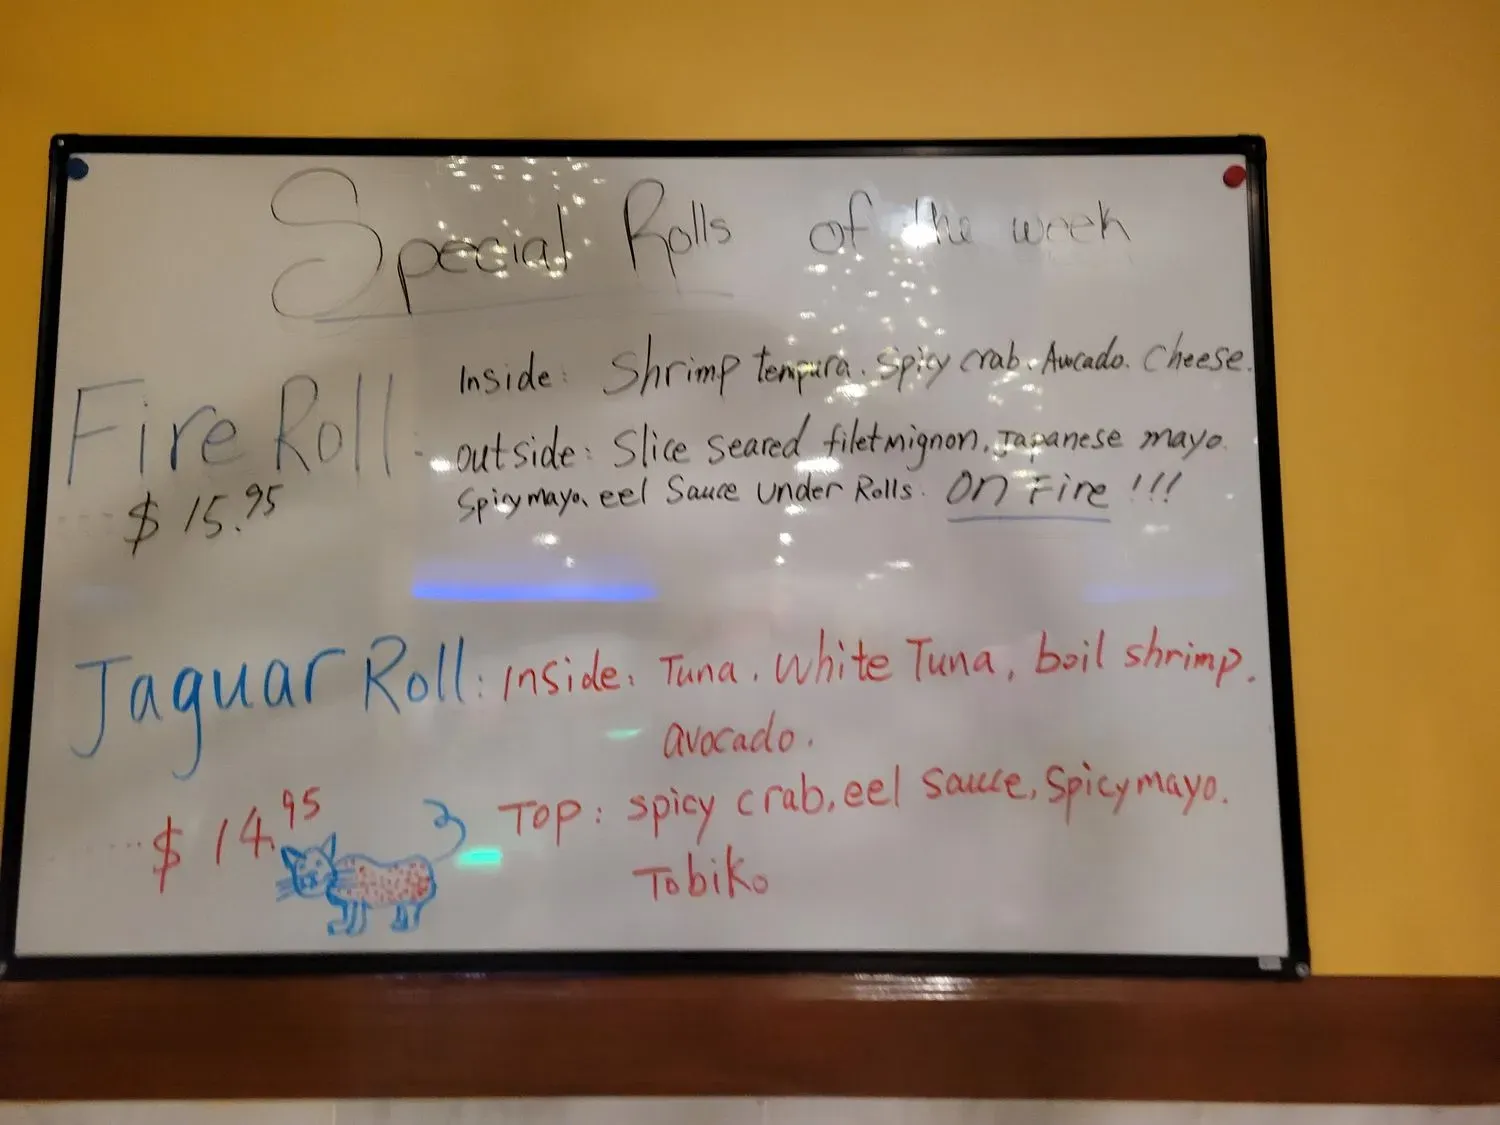 Special Rolls of the week
Fire Roll:
$15.95
Inside: Shrimp tempura. Spicy crab. Avocado. Cheese.
outside: Slice seared filetmignon. Japanese mayo.
Spicymayo. eel Sauce under Rolls. ON Fire!!!
Jaguar Roll: Inside: Tuna. White Tuna. boil shrimp.
avocado.
$14.95
Top: spicy crab. eel sauce. Spicymayo.
Tobiko